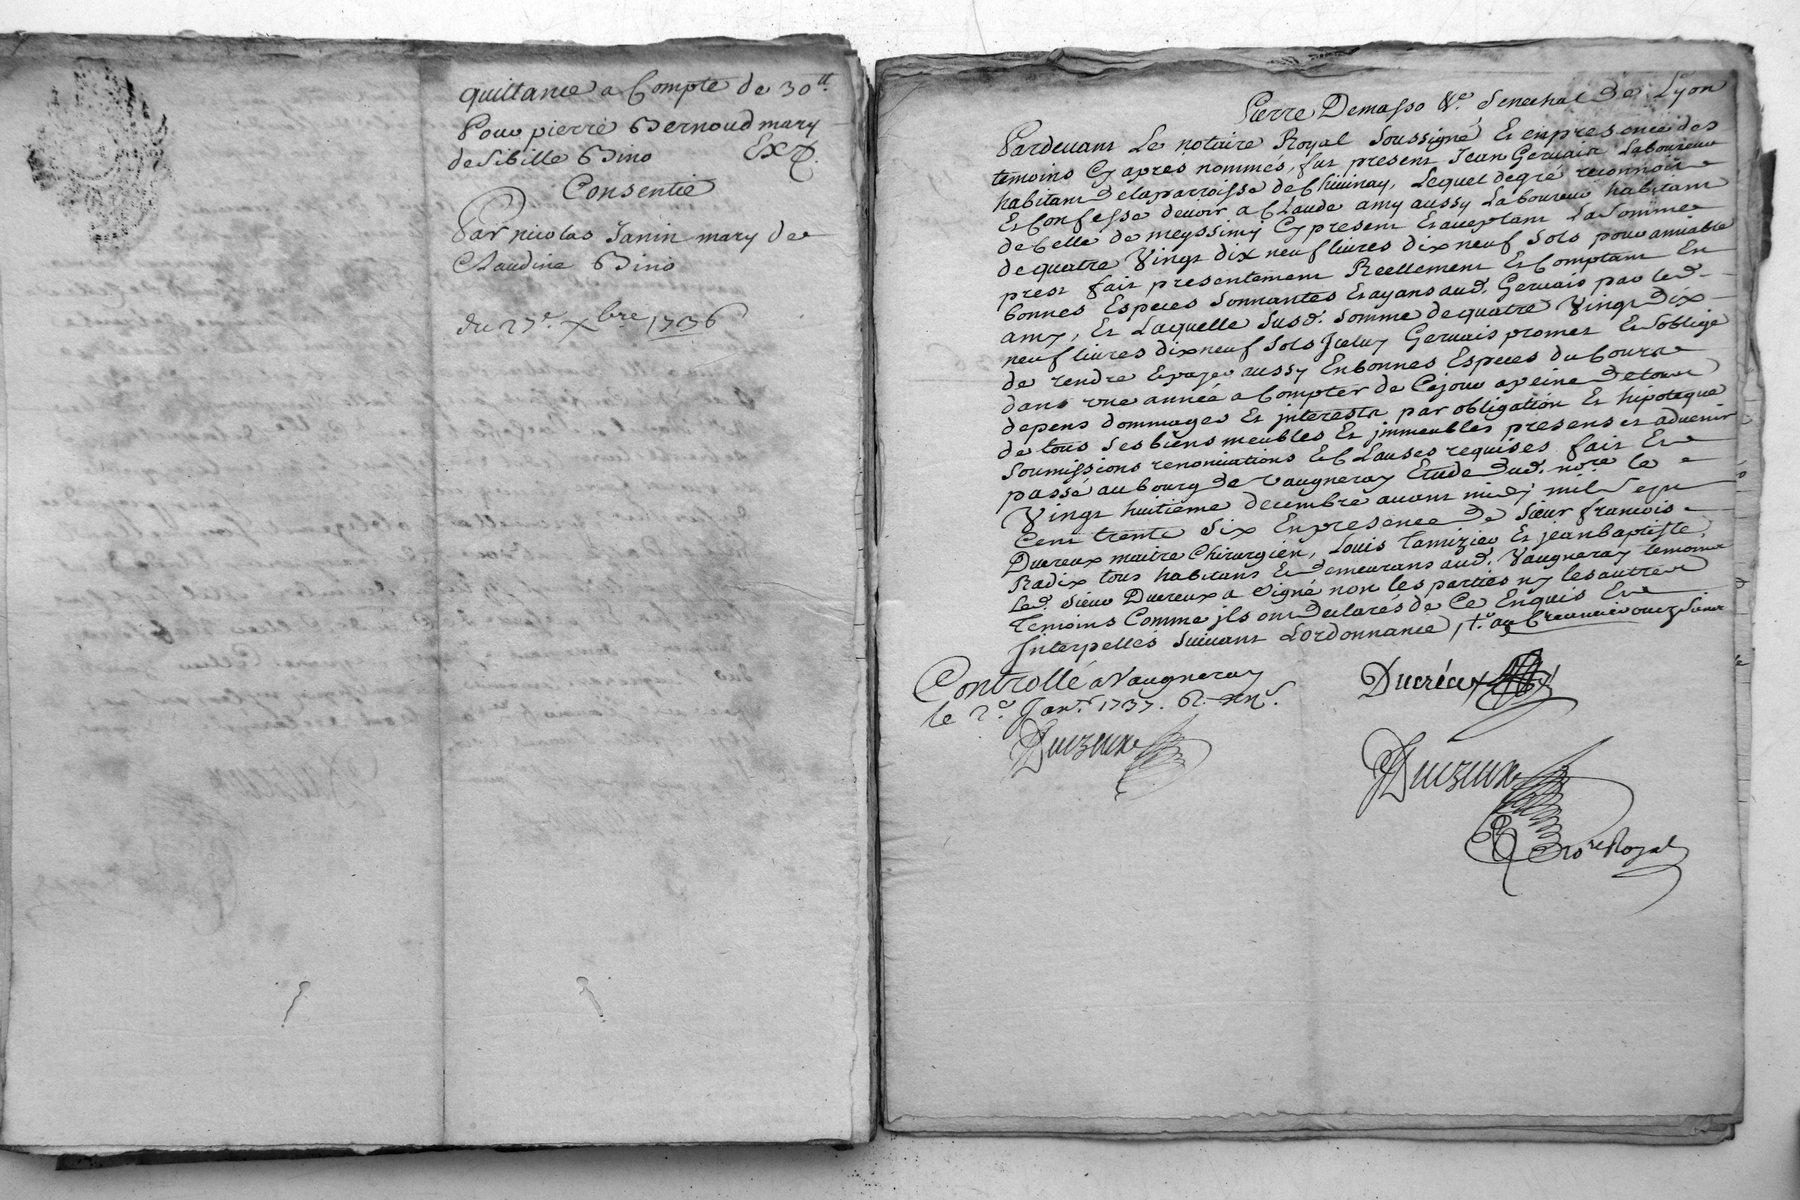 quittance a Compte de 30tt.
Pour pierre Bernoud mary
de Sibille Bino Exp.
Consentie
Par nicolas Janin mary de
Claudine Bino
du 27e. Xbre 1736
Pierre Demasso &c. Senechal de Lyon
Pardevant Le notaire Royal Soussigné Et enpresence des
temoins Cy apres nommés, fut present Jean Gervais Laboureur
habitant delaparroisse de Chivinay, Lequel degré reconnoit
Et Confesse devoir a Claude amy aussy Laboureur habitant
de Celle de meyssimy Cy present Et acceptant La Somme
dequatre Vingt dix neuf livres dix neuf Sols pour amiable
prest fait presentement Reellement Et Comptant En
bonnes Especes Sonnantes Et ayans aud. Gervais par led.
amy, Et Laquelle Susd. Somme dequatre Vingt dix
neuf livres dixneuf Sols Jceluy Gervais promet Et Soblige
de rendre Et payer aussy Enbonnes Especes du Cours
dans vne année a Compter de Cejour apeine de tous
depens dommages Et jnterests par obligation Et hipoteque
de tous Ses biens meubles Et jmmeubles presens et advenir
Soumissions renonciations Et Clauses requises fait Et
passé au bourg de Vaugneray Etude dud. nore le
Vingt huitieme decembre avant midy mil Sept
Cent trente Six Enpresence de Sieur francois
Ducreux maitre Chirurgien, Louis Tamizier Et jeanbaptiste
Radix tous habitans Et demeurans aud. Vaugneray temoins
Led. Sieur Ducreux a Signé non les parties ny les autres
Temoins Comme jls ont declarés de Ce Enquis Et
Jnterpellés Suivant Lordonnance
Controllé a Vaugneray
le 2e. Janr. 1737.
Ducréux
nore Royal